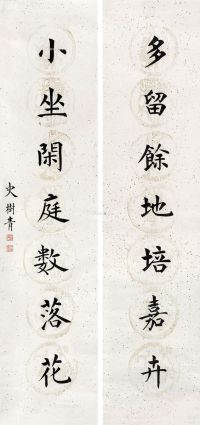 多留餘地培嘉卉
小坐閑庭數落花
史樹青